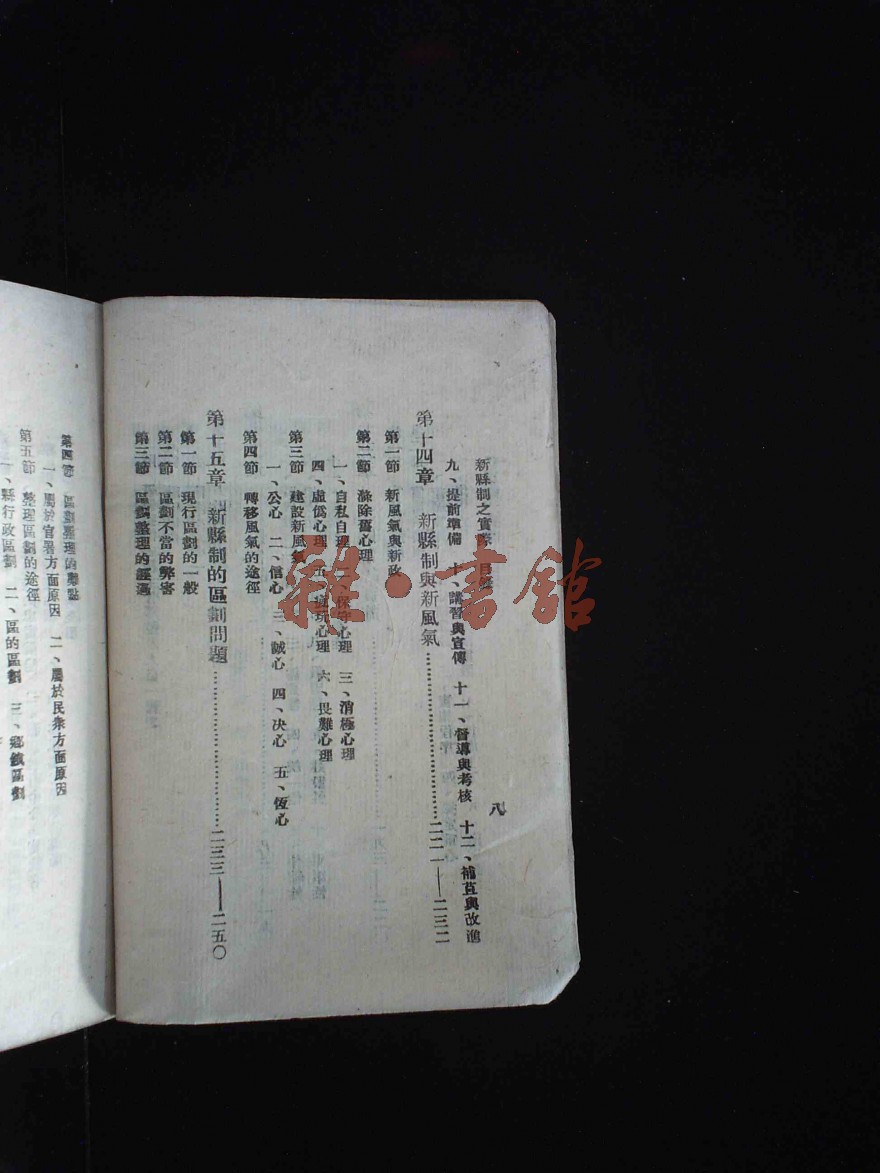 新縣制之實際 目錄
八
九、提前準備 十、講習與宣傳 十一、督導與考核 十二、補苴與改進
第十四章 新縣制與新風氣……二二一——二三二
第一節 新風氣與新政
第二節 滌除舊心理
一、自私自理 二、保守心理 三、消極心理
四、虛僞心理 五、玩心理 六、畏難心理
第三節 建設新風氣
一、公心 二、信心 三、誠心 四、决心 五、恆心
第四節 轉移風氣的途徑
第十五章 新縣制的區劃問題……二三三——二五〇
第一節 現行區劃的一般
第二節 區劃不當的弊害
第三節 區劃整理的經過
第四節 區劃整理的難點
一、屬於官署方面原因 二、屬於民衆方面原因
第五節 整理區劃的途徑
一、縣行政區劃 二、區的區劃 三、鄉鎮區劃
雜·書館